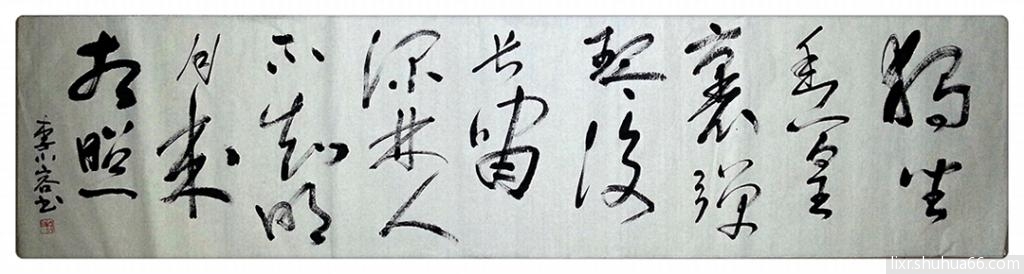 獨坐
幽篁
裏彈
琴復
长嘯
深林人
不知明
月来
相照
李小容书
lixr.shuhua66.com